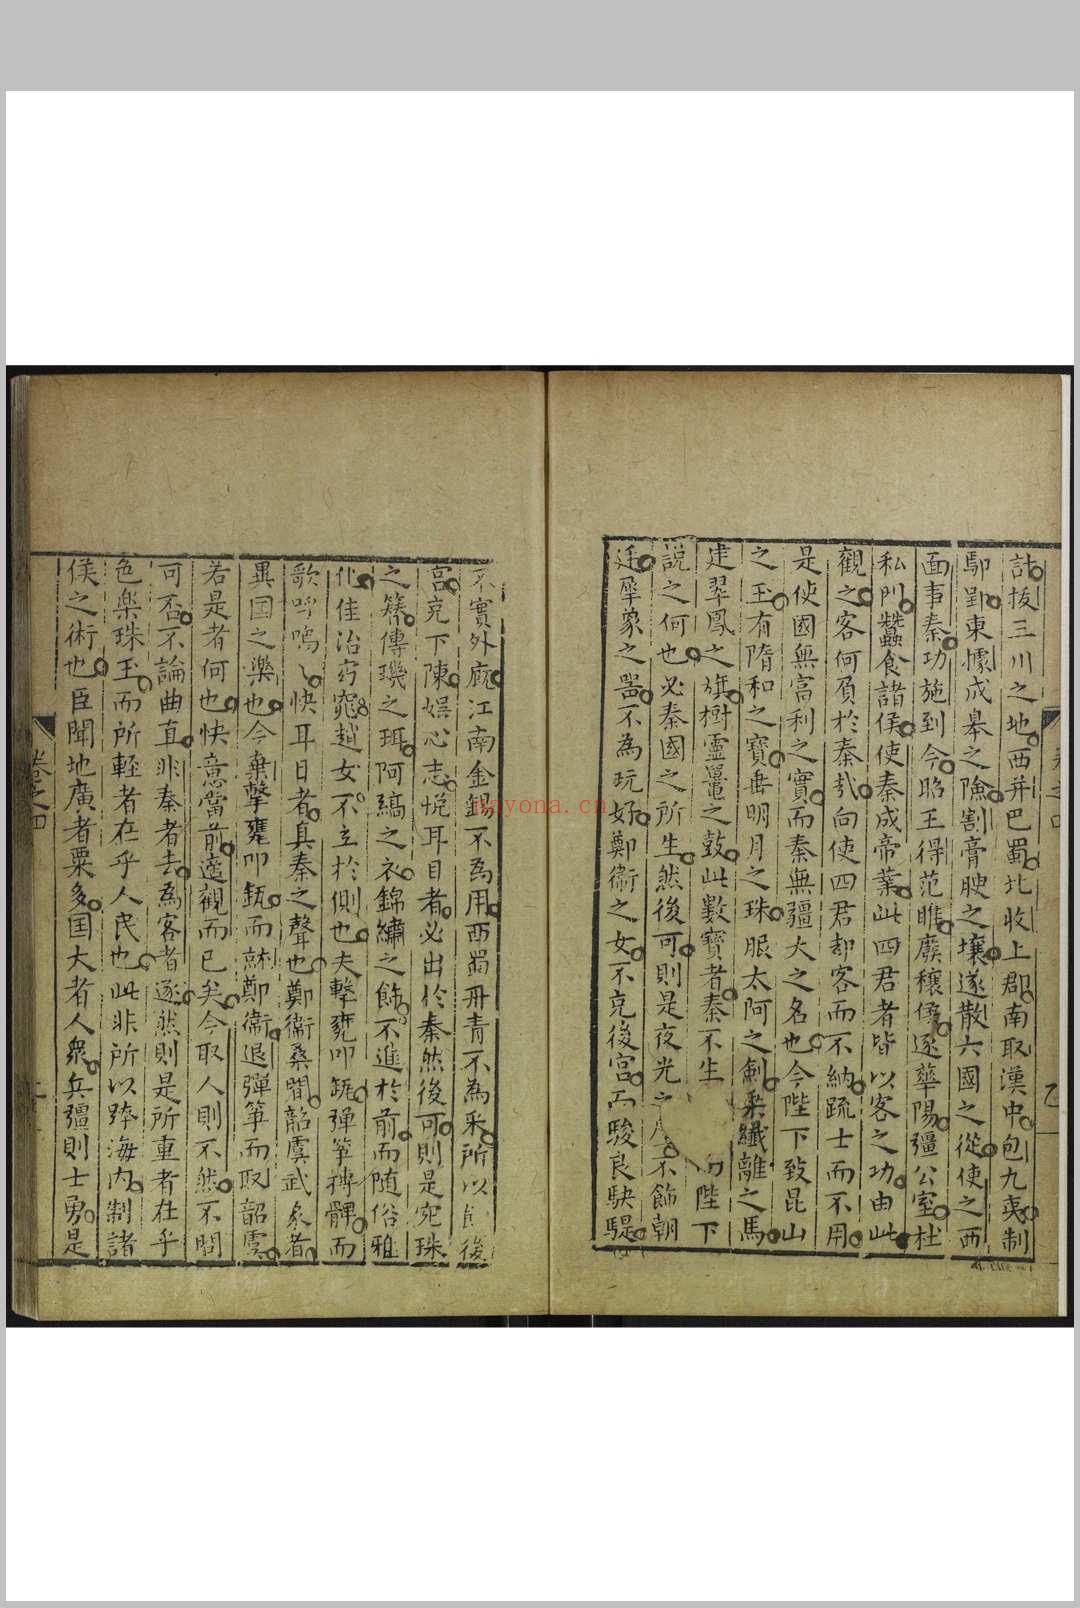 計拔三川之地西并巴蜀北收上郡南取漢中包九夷制
鄢郢東據成皋之險割膏腴之壤遂散六國之從使之西
面事秦功施到今昭王得范睢廢穰侯逐華陽彊公室杜
私門蠶食諸侯使秦成帝業此四君者皆以客之功由此
觀之客何負於秦哉向使四君却客而不納疏士而不用
是使國無富利之實而秦無彊大之名也今陛下致昆山
之玉有隋和之寶垂明月之珠服太阿之劍乘纖離之馬
建翠鳳之旗樹靈鼉之鼓此數寶者秦不生 陛下
説之何也必秦國之所生然後可則是夜光之 不飾朝
廷犀象之器不為玩好鄭衛之女不充後宮而駿良駃騠
不實外廐江南金錫不為用西蜀丹青不為采所以 後
宮充下陳娛心志悅耳目者必出於秦然後可則是宛珠
之簪傅璣之珥阿縞之衣錦繡之飾不進於前而隨俗雅
化佳冶窈窕趙女不立於側也夫擊甕叩缻彈箏搏髀而
歌呼嗚〻快耳目者真秦之聲也鄭衛桑間韶虞武象者
異国之樂也今棄擊甕叩缻而就鄭衛退彈箏而取韶虞
若是者何也快意當前適觀而已矣今取人則不然不問
可否不論曲直非秦者去為客者逐然則是所重者在乎
色樂珠玉而所輕者在乎人民也此非所以跨海内制諸
侯之術也臣聞地廣者粟多国大者人衆兵彊則士勇是
卷之四
nayona.cn